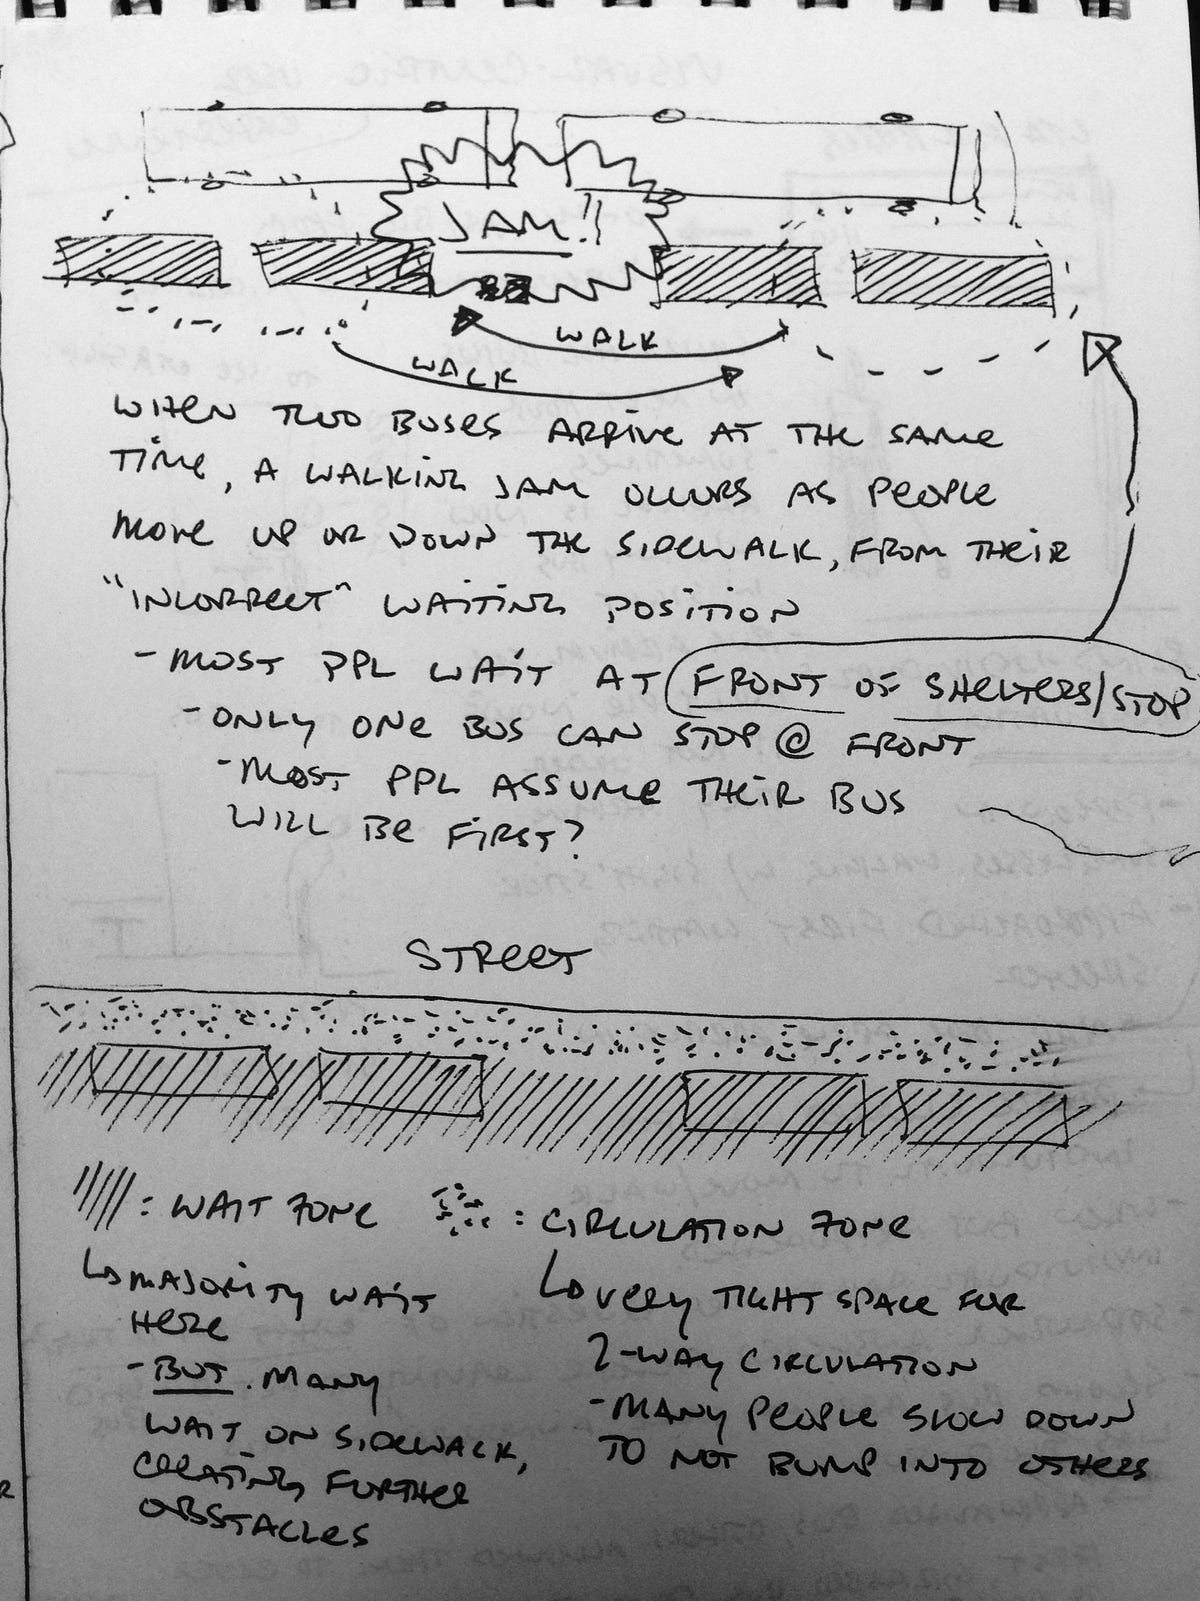 JAM!!
WALK
WALK
WHEN TWO BUSES ARRIVE AT THE SAME
TIME, A WALKING JAM OCCURS AS PEOPLE
MOVE UP OR DOWN THE SIDEWALK, FROM THEIR
"INCORRECT" WAITING POSITION
- MOST PPL WAIT AT FRONT OF SHELTERS/STOP
- ONLY ONE BUS CAN STOP @ FRONT
- MOST PPL ASSUME THEIR BUS
WILL BE FIRST?
STREET
: WAIT ZONE : CIRCULATION ZONE
MAJORITY WAIT
HERE
- BUT MANY
WAIT ON SIDEWALK,
CREATING FURTHER
OBSTACLES
VERY TIGHT SPACE FOR
2-WAY CIRCULATION
- MANY PEOPLE SLOW DOWN
TO NOT BUMP INTO OTHERS